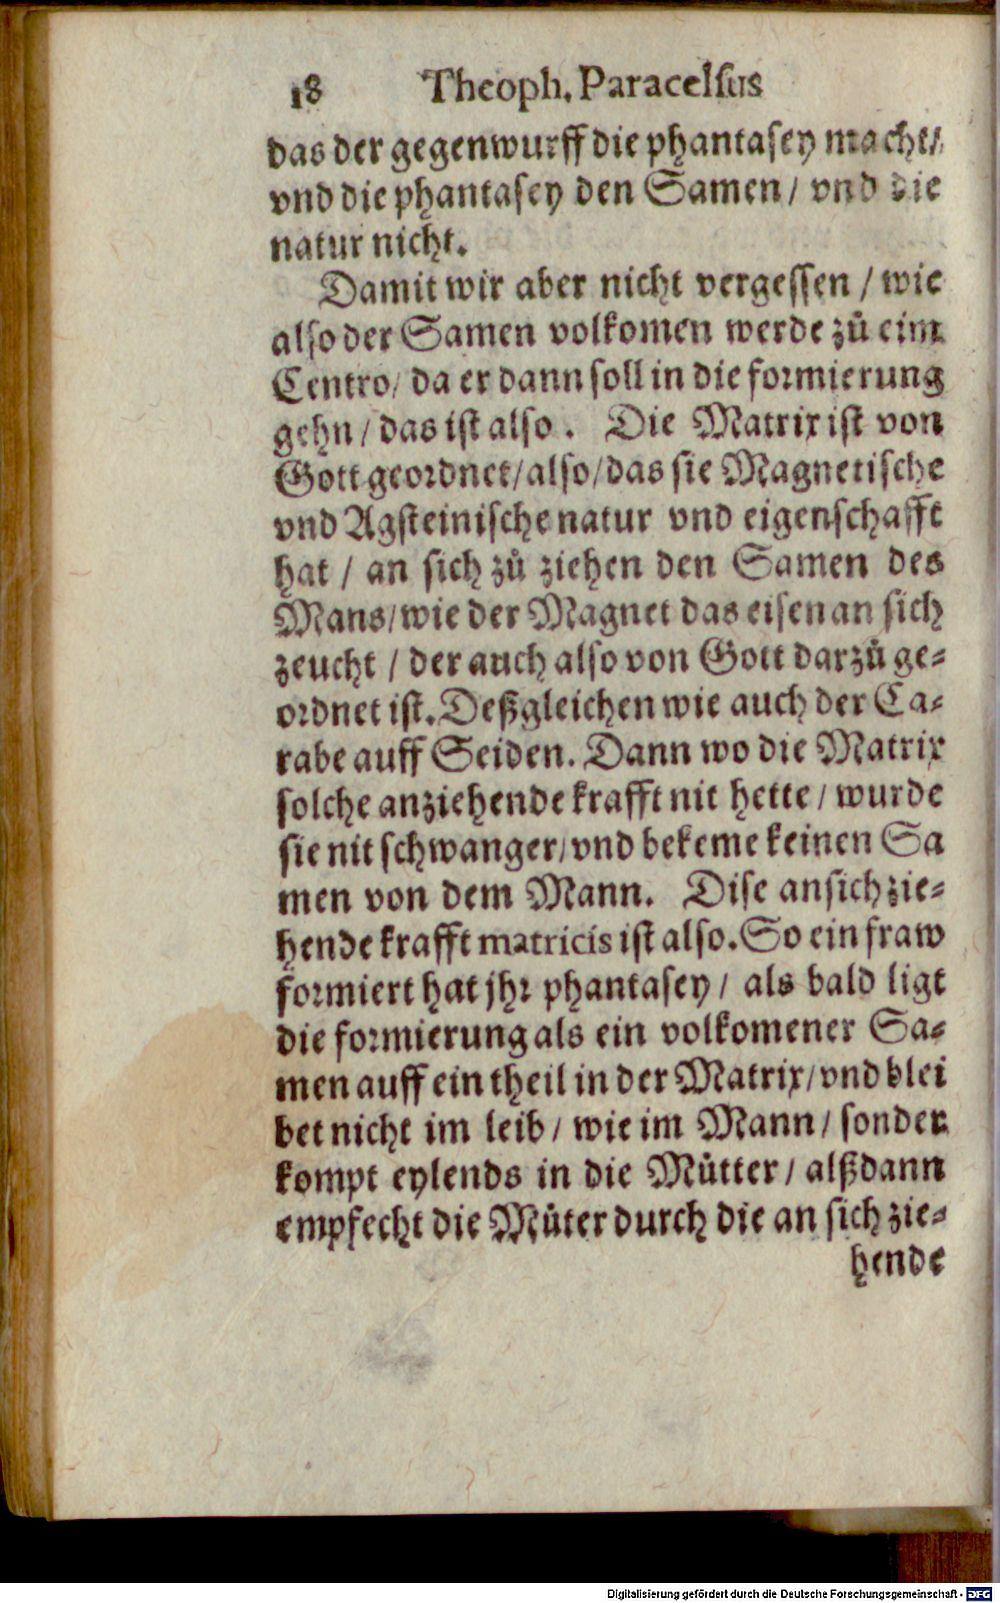 18 Theoph. Paracelsus
das der gegenwurff die phantasey macht/
vnd die phantasey den Samen / vnd die
natur nicht.
Damit wir aber nicht vergessen / wie
also der Samen volkomen werde zů eim
Centro/ da er dann soll in die formierung
gehn / das ist also. Die Matrix ist von
Gott geordnet/also/das sie Magnetische
vnd Agsteinische natur vnd eigenschafft
hat / an sich zů ziehen den Samen des
Mans/wie der Magnet das eisen an sich
zeucht / der auch also von Gott darzů ge-
ordnet ist. Deßgleichen wie auch der Ca-
rabe auff Seiden. Dann wo die Matrix
solche anziehende krafft nit hette / wurde
sie nit schwanger/vnd bekeme keinen Sa
men von dem Mann. Dise ansich zie-
hende krafft matricis ist also. So ein fraw
formiert hat jhr phantasey / als bald ligt
die formierung als ein volkomener Sa-
men auff ein theil in der Matrix/vnd blei
bet nicht im leib / wie im Mann / sonder
kompt eylends in die Můtter / alßdann
empfecht die Můter durch die an sich zie-
hende
Digitalisierung gefördert durch die Deutsche Forschungsgemeinschaft - DFG